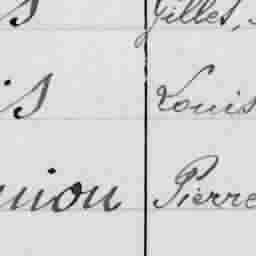 s Gilles,
is Louis
nion Pierre